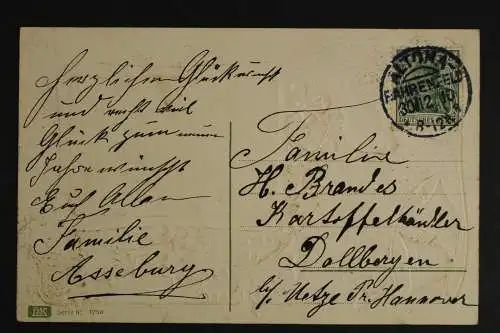 Herzlichen Glückwunsch
und recht viel
Glück zum neuen
Jahre wünscht
Euch Allen
Familie
Asseburg
ALTONA
BAHRENFELD
30.12.
8-12
Familie
H. Brandes
Kartoffelhändler
Dollbergen
b/. Uetze Pr. Hannover
Serie Nr.